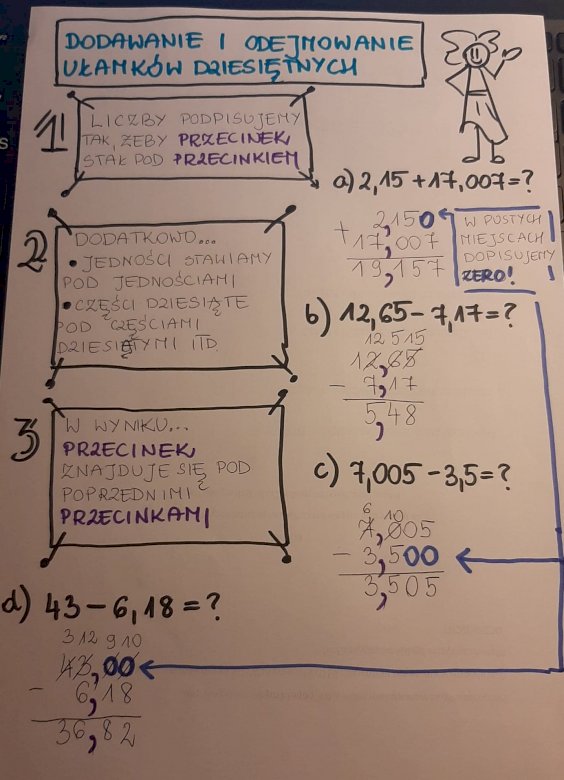 DODAWANIE I ODEJMOWANIE
UŁAMKÓW DZIESIĘTNYCH
1
LICZBY PODPISUJEMY
TAK, ŻEBY PRZECINEK
STAŁ POD PRZECINKIEM
2
DODATKOWO...
• JEDNOŚCI STAWIAMY
POD JEDNOŚCIAMI
• CZĘŚCI DZIESIĄTE
POD CZĘŚCIAMI
DZIESIĄTYMI ITD.
3
W WYNIKU...
PRZECINEK
ZNAJDUJE SIĘ POD
POPRZEDNIMI
PRZECINKAMI
a) 2,15 + 17,007 = ?
2,150
+ 17,007
19,157
W PUSTYCH
MIEJSCACH
DOPISUJEMY
ZERO!
b) 12,65 - 7,17 = ?
12 5 15
12,65
- 7,17
5,48
c) 7,005 - 3,5 = ?
6 10
7,005
- 3,500
3,505
d) 43 - 6,18 = ?
3 12 9 10
43,00
- 6,18
36,82